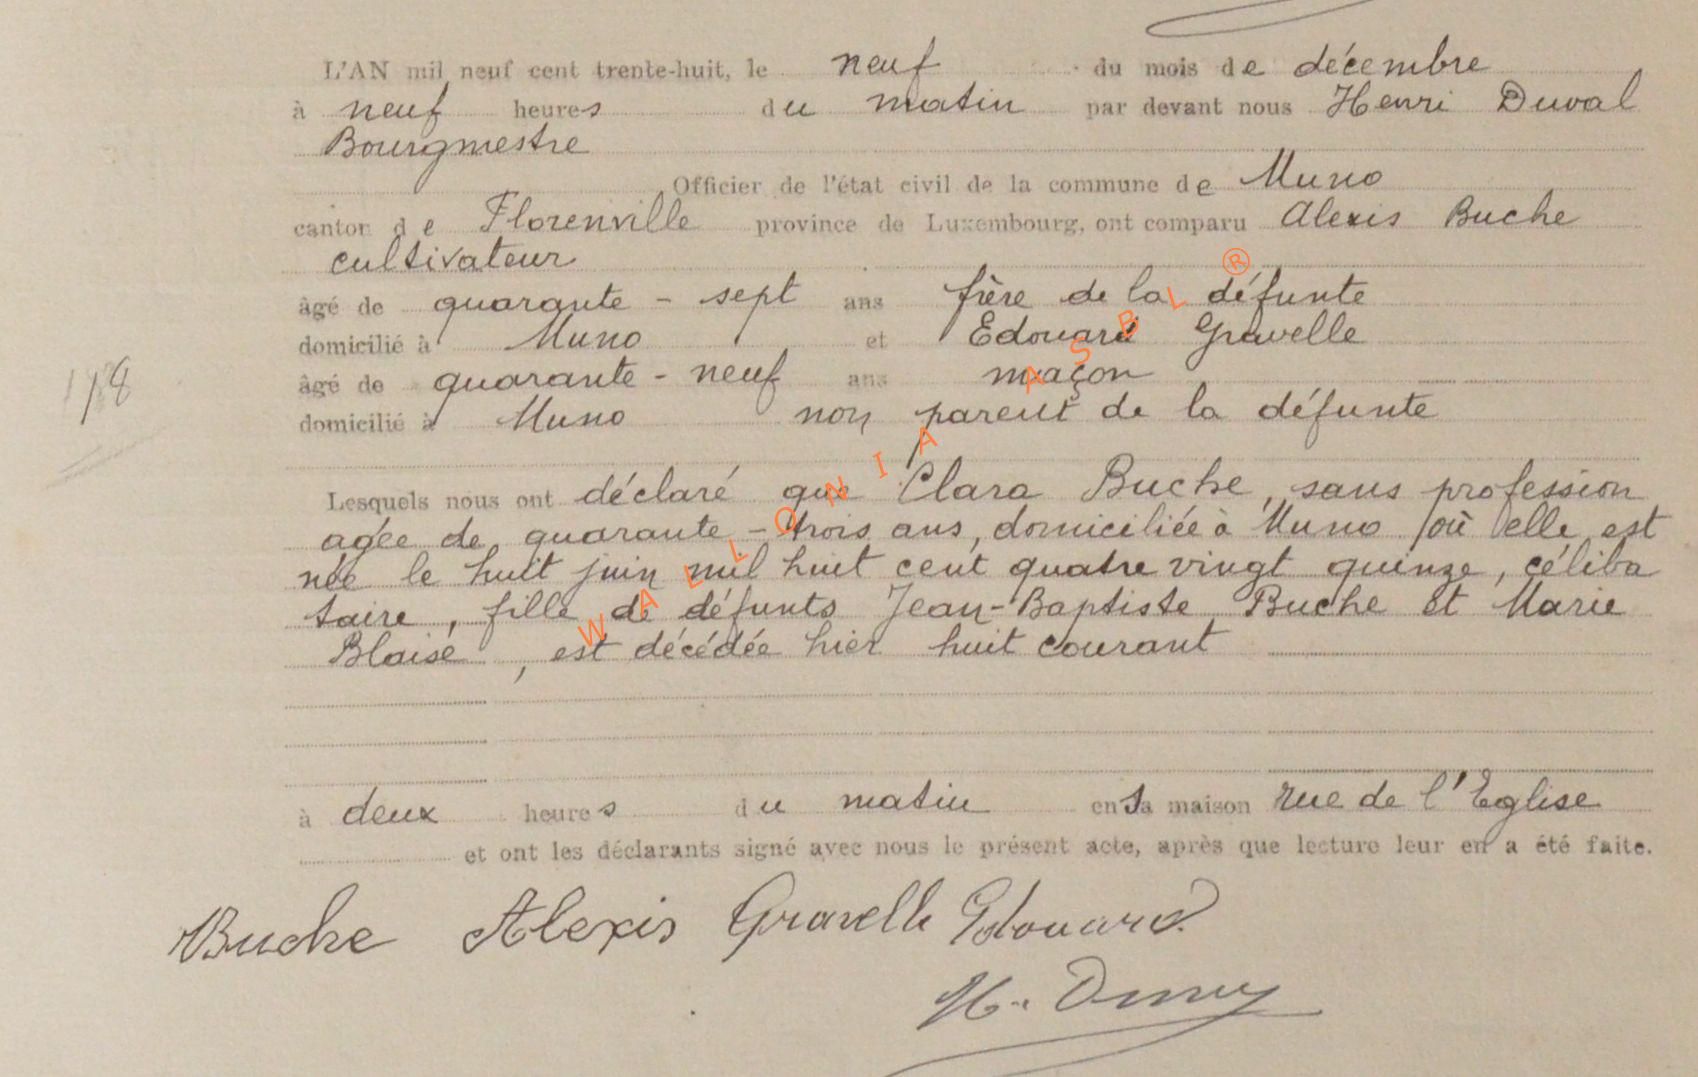 L'AN mil neuf cent trente-huit, le neuf du mois de décembre
à neuf heures du matin par devant nous Henri Duval
Bourgmestre
Officier de l'état civil de la commune de Muno
canton de Florenville province de Luxembourg, ont comparu Alexis Buche
cultivateur
âgé de quarante-sept ans frère de la défunte
domicilié à Muno et Edouard Gravelle
âgé de quarante-neuf ans maçon
domicilié à Muno non parent de la défunte
Lesquels nous ont déclaré que Clara Buche, sans profession
agée de quarante-trois ans, domiciliée à Muno où elle est
née le huit juin mil huit cent quatre vingt quinze, céliba
taire, fille de défunts Jean-Baptiste Buche et Marie
Blaise, est décédée hier huit courant
à deux heures du matin en sa maison rue de l'Eglise
et ont les déclarants signé avec nous le présent acte, après que lecture leur en a été faite.
Buche Alexis Gravelle Edouard
H.
WALLONIA ASBL ®